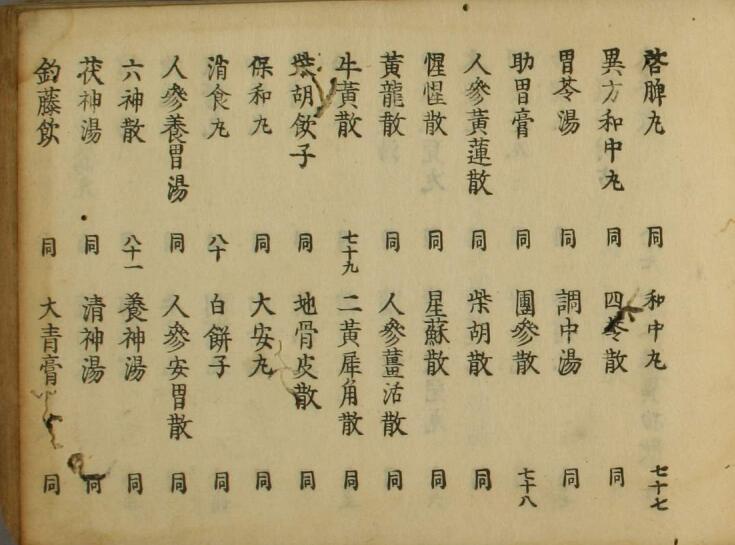 啓脾丸 同 和中丸 七十七
異方和中丸 同 四苓散 同
胃苓湯 同 調中湯 同
助胃膏 同 團參散 七十八
人參黃蓮散 同 柴胡散 同
惺惺散 同 星蘇散 同
黃龍散 同 人參薑活散 同
牛黃散 七十九 二黃犀角散 同
柴胡飮子 同 地骨皮散 同
保和丸 同 大安丸 同
消食丸 八十 白餠子 同
人參養胃湯 同 人參安胃散 同
六神散 八十一 養神湯 同
茯神湯 同 清神湯 同
釣藤飮 同 大青膏 同